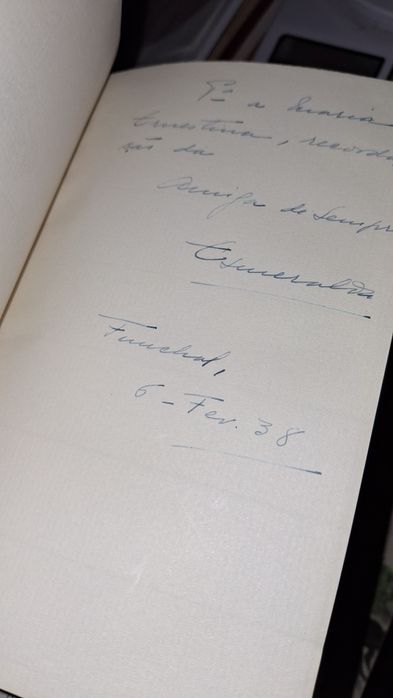 Pª a Maria
Ernestina, recorda
ção da
Amiga de Sempr
Esmeralda
Funchal,
6 - Fev. 38